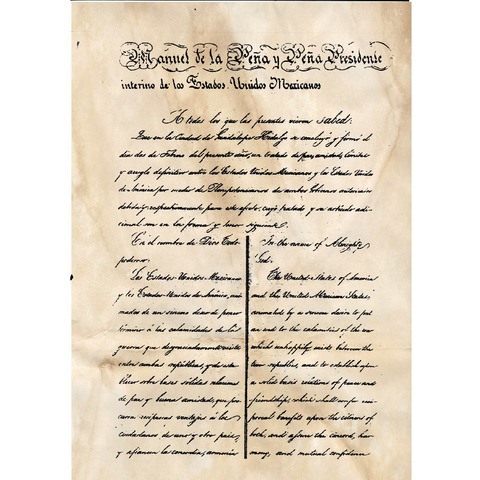 Manuel de la Peña y Peña Presidente
interino de los Estados Unidos Mexicanos
A todos los que las presentes vieren sabed:
Que en la Ciudad de Guadalupe Hidalgo se concluyó y firmó el
dia dos de Febrero del presente año, un tratado de paz, amistad, limites
y arreglo definitivo entre los Estados Unidos Mexicanos y los Estados Unidos
de América por medio de Plenipotenciarios de ambos Gobiernos autorizados
debida y respectivamente para este efecto, cuyo tratado y su artículo adi-
cional son en la forma y tenor siguiente.
En el nombre de Dios Todo
poderoso.
Los Estados-Unidos-Mexicanos
y los Estados-Unidos de América, ani-
mados de un sincero deseo de poner
término á las calamidades de la
guerra que desgraciadamente existe
entre ambas repúblicas, y de esta-
blecer sobre bases sólidas relaciones
de paz y buena amistad, que pro-
curen reciprocas ventajas á los
ciudadanos de uno y otro pais,
y afiancen la concordia, armonia
In the name of Almighty
God.
The United-States of America
and the United Mexican States:
animated by a sincere desire to put
an end to the calamities of the war
which unhappily exists between the
two republics, and to establish upon
a solid basis relations of peace and
friendship, which shall confer reci-
procal benefits upon the citizens of
both, and assure the concord, har-
mony, and mutual confidence